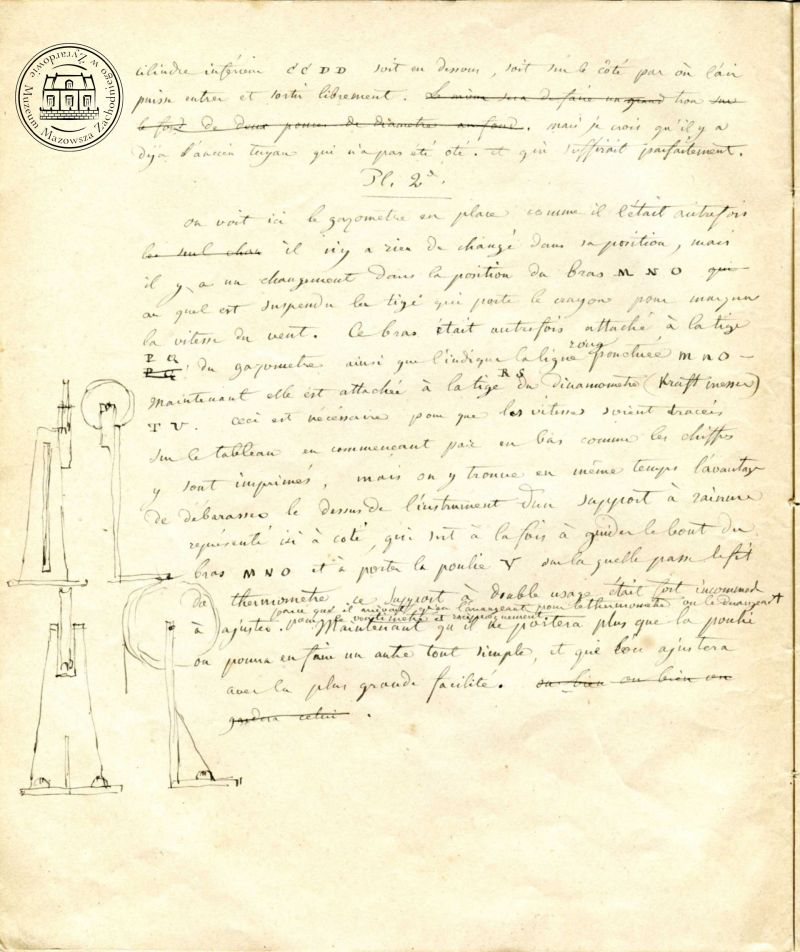 Muzeum Mazowsza Zachodniego w Żyrardowie
cilindre inférieur CC DD soit en dessous, soit sur le côté par où l'air
puisse entrer et sortir librement. Le même sera de faire un grand trou sur
le fond de deux pouces de diametre au fond. mais je crois qu'il y a
déja l'ancien tuyau qui n'a pas été oté. et qui suffirait parfaitement.
Pl. 2e.
on voit ici le gazometre en place comme il l'était autrefois
il n'y a rien de changé dans sa position, mais
il y a un changement dans la position du bras M N O qui
au quel est suspendu la tige qui porte le crayon pour marquer
la vitesse du vent. Ce bras était autrefois attaché à la tige
P Q
P Q du gazometre ainsi que l'indique la ligne rouge ponctuée M N O -
maintenant elle est attachée à la tige RS du dinamometre (Kraftmesser)
T V. ceci est nécéssaire pour que les vitesses soient tracées
sur le tableau en commençant par en bas comme les chiffres
y sont imprimés, mais on y trouve en même temps l'avantage
de débarasser le dessus de l'instrument d'un support à rainure
représenté ici à coté, qui sert à la fois à guider le bout du
bras M N O et à porter la poulie V sur laquelle passe le fil
du thermomètre ce support à double usage était fort incommod
parce que il arrivait qu'en l'arrangeant pour le thermometre on le dérangeait
pour le et réciproquement.
à ajuster. Maintenant qu'il ne portera plus que la poulie
on pourra en faire un autre tout simple, et que l'on ajustera
avec la plus grande facilité. ou bien ou bien on
gardera celui.